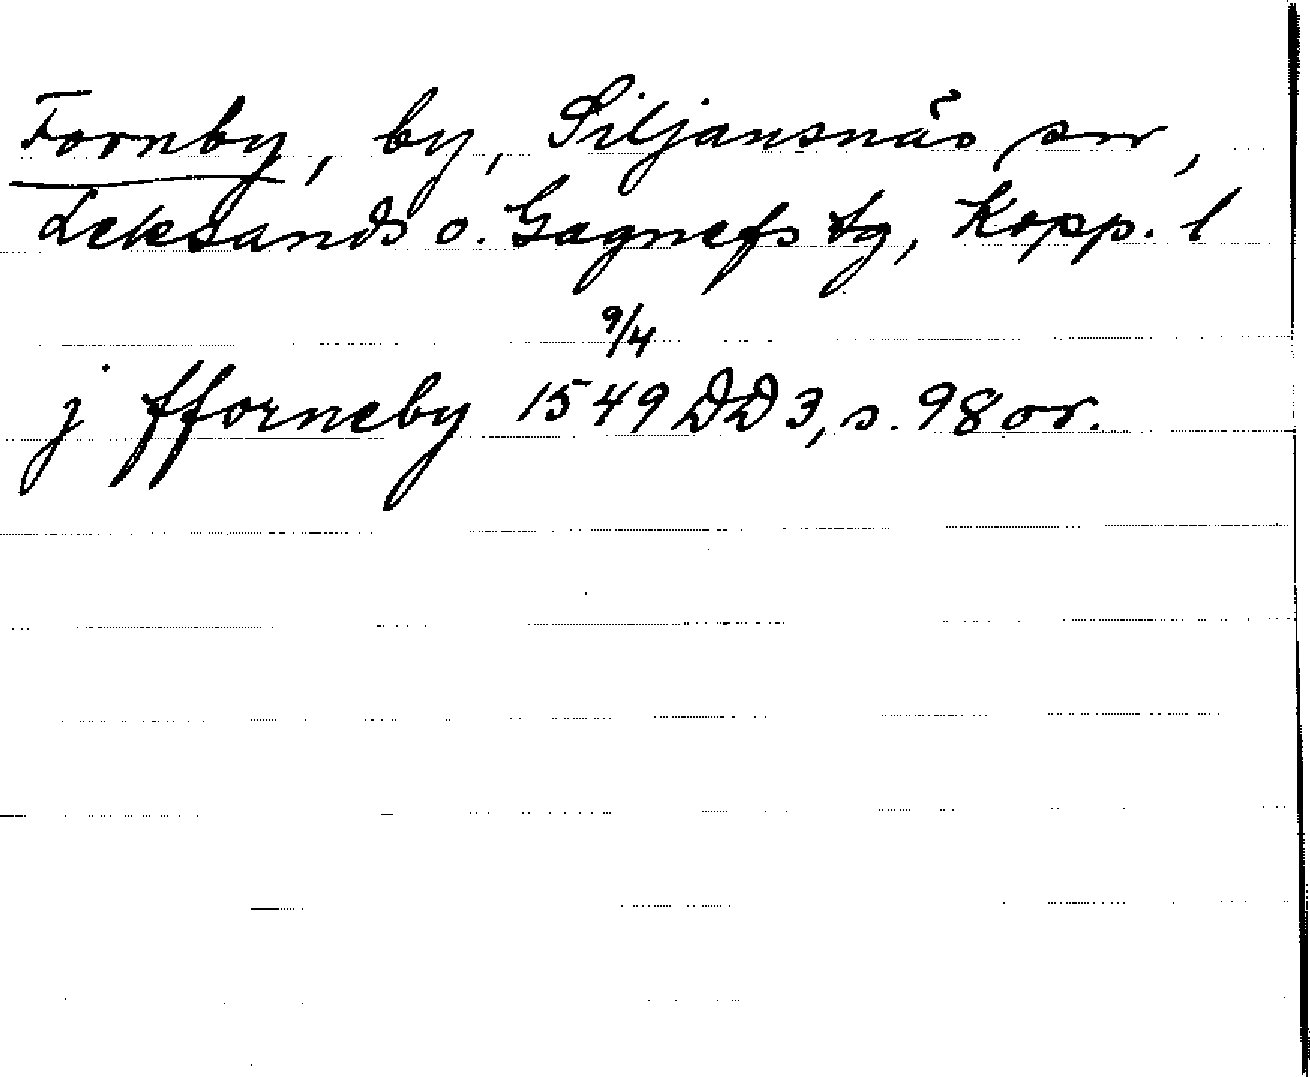 Fornby, by, Siljansnäs sn,
Leksands o. Gagnefs tg, Kopp. l
9/4
j fforneby 1549 DD 3, s. 98 or.